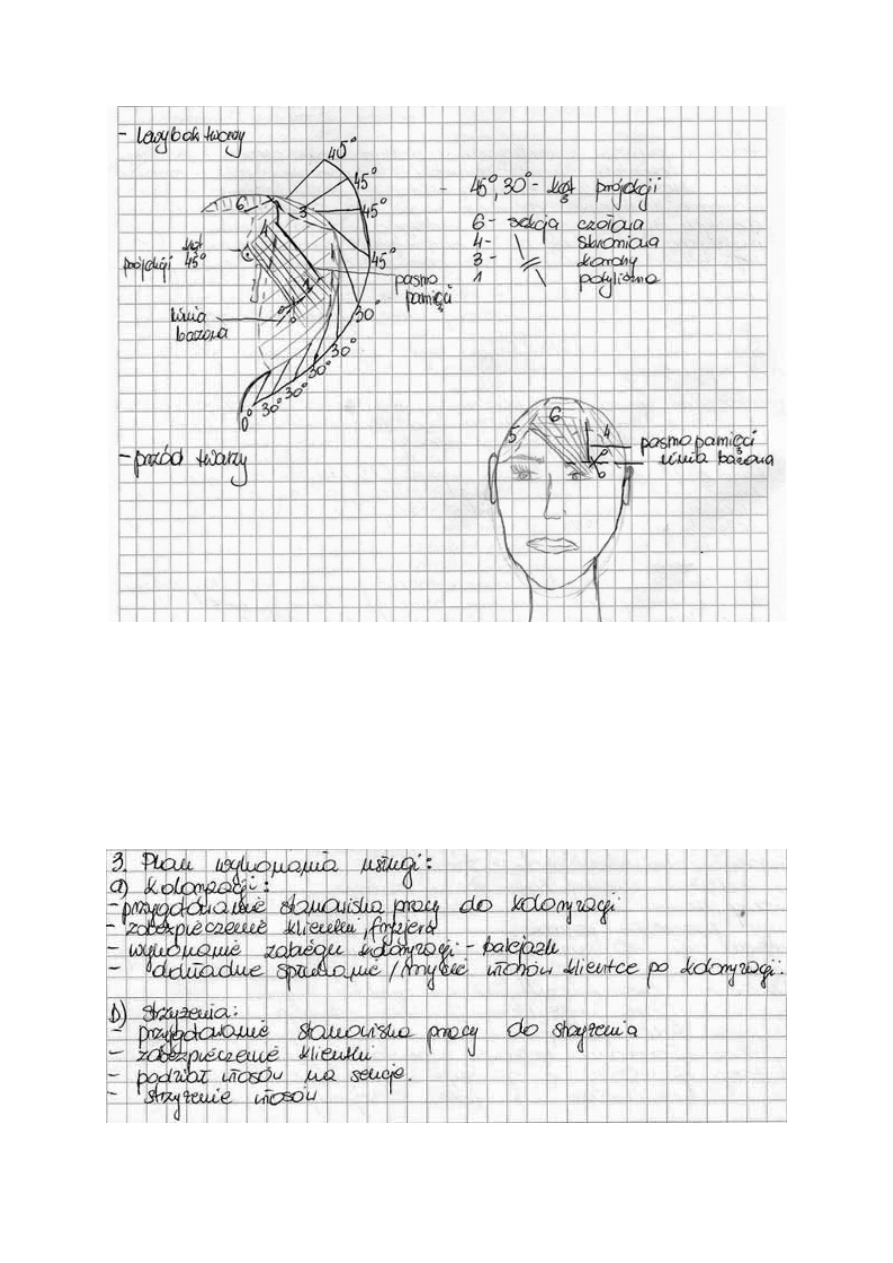 - lewy bok twarzy
45°
45°
45°
45°
30°
30°
30°
30°
30°
0°
6
3
4
1
kąt
projekcji 45°
linia
bazowa
pasmo
pamięci
45°, 30° - kąt projekcji
6 - sekcja czołowa
4 - skroniowa
3 - korony
1 potyliczna
- przód twarzy
5
6
4
pasmo pamięci
linia bazowa
3. Plan wykonania usługi:
a) koloryzacji:
- przygotowanie stanowiska pracy do koloryzacji
- zabezpieczenie klientki, fryzjera
- wykonanie zabiegu koloryzacji - balejażu
- dokładne spłukanie / mycie włosów klientce po koloryzacji.
b) strzyżenia:
- przygotowanie stanowiska pracy do strzyżenia
- zabezpieczenie klientki
- podział włosów na sekcje.
- strzyżenie włosów